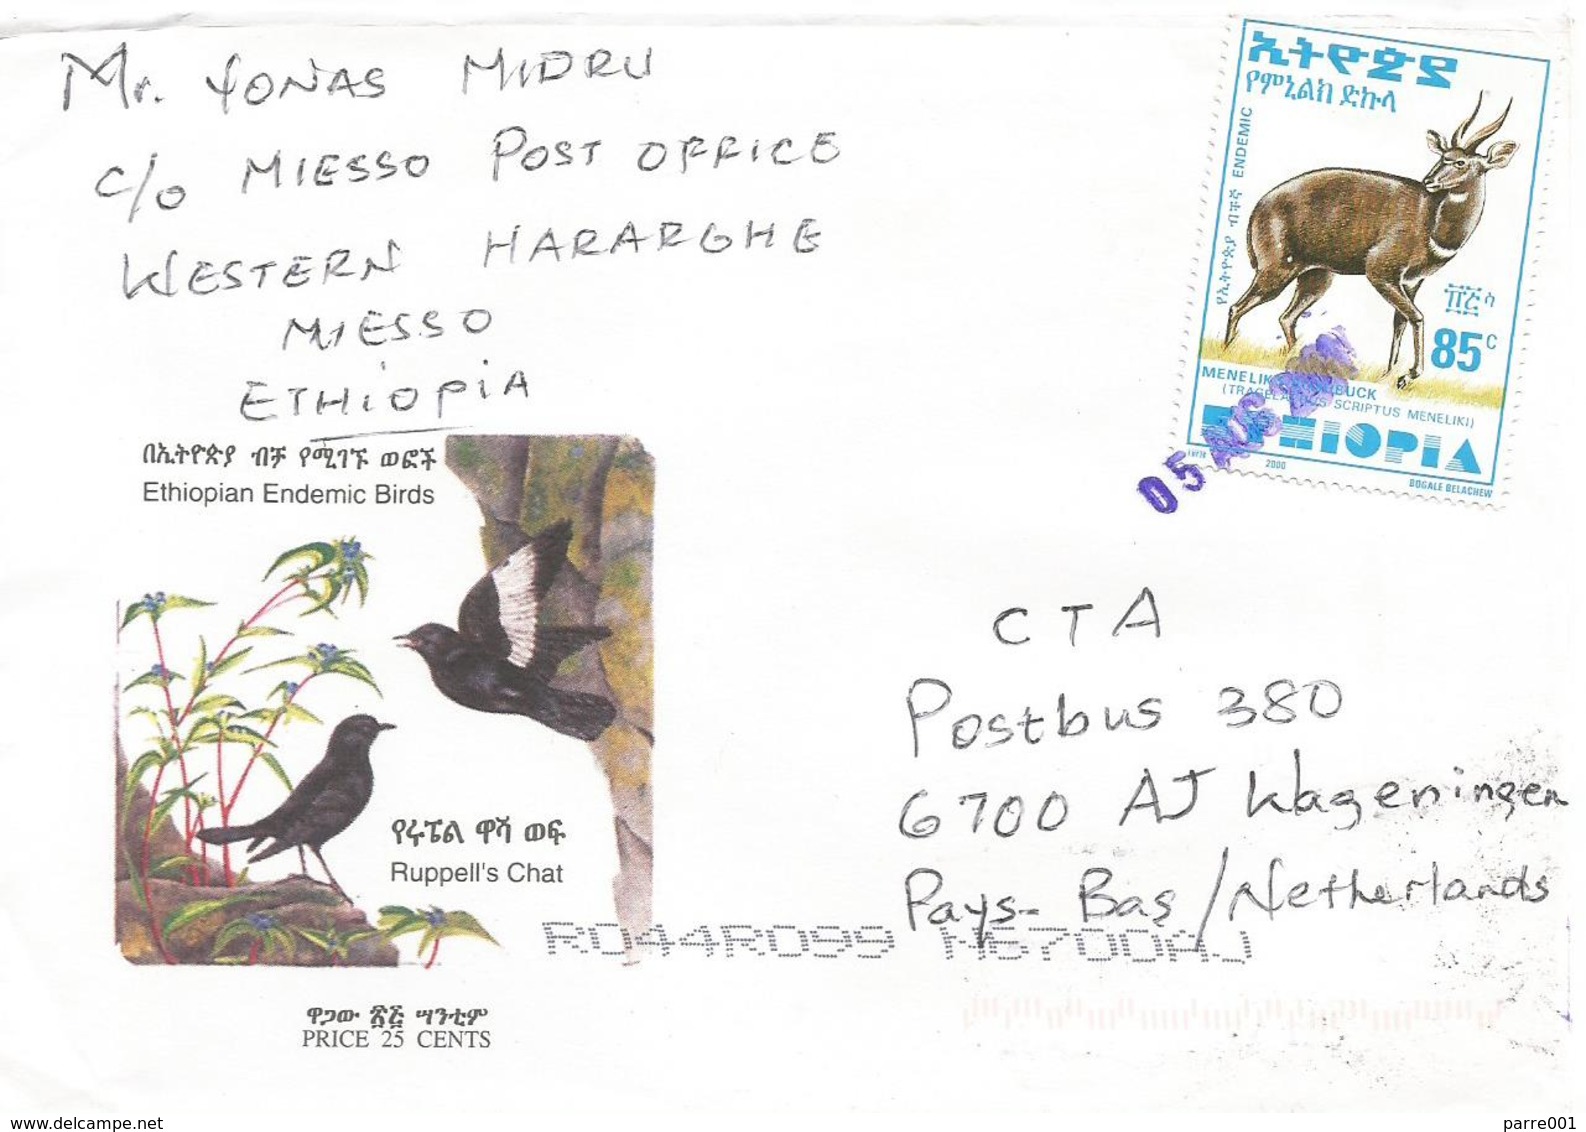 Mr. YONAS MIDRU
C/o MIESSO POST OFFICE
WESTERN HARARGHE
MIESSO
ETHIOPIA
ኢትዮጵያ
የምኒልክ ድኩላ
የኢትዮጵያ ብቸኛ ENDEMIC
፹፭ ሳ
85c
(TRAGELAPHUS SCRIPTUS MENELIKI)
ETHIOPIA
2000
BOGALE BELACHEW
05 AUG
በኢትዮጵያ ብቻ የሚገኙ ወፎች
Ethiopian Endemic Birds
የሩፔል ዋሻ ወፍ
Ruppell's Chat
CTA
Postbus 380
6700 AJ Wageningen
Pays-Bas / Netherlands
R044R099 N6700AJ
ዋጋው ፳፭ ሣንቲም
PRICE 25 CENTS
www.delcampe.net
parre001